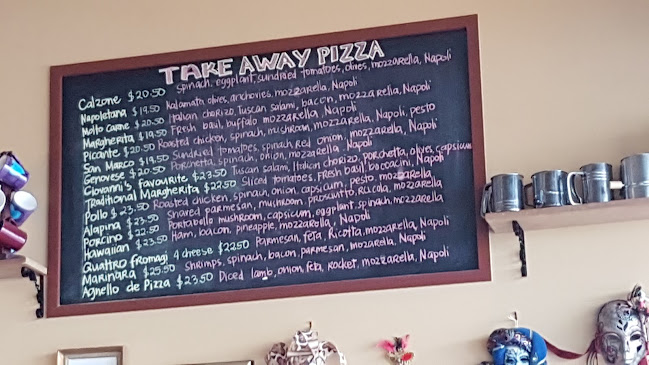 TAKE AWAY PIZZA
Calzone $20.50 Spinach, eggplant, sundried tomatoes, olives, mozzarella, Napoli
Napoletana $19.50 Kalamata olives, anchovies, mozzarella, Napoli
Molto Carne $20.50 Italian chorizo, Tuscan salami, bacon, mozzarella, Napoli
Margherita $19.50 Fresh basil, buffalo mozzarella, Napoli
Picante $20.50 Roasted chicken, spinach, mushroom, mozzarella, Napoli, pesto
San Marco $19.50 Sundried tomatoes, spinach, red onion, mozzarella, Napoli
Genovese $20.50 Porchetta, spinach, onion, mozzarella, Napoli
Giovanni's Favourite $23.50 Tuscan salami, Italian chorizo, porchetta, olives, capsicum
Traditional Margherita $22.50 Sliced tomatoes, Fresh basil, bocoacini, Napoli
Pollo $23.50 Roasted chicken, spinach, onion, capsicum, pesto, mozzarella
Alapina $23.50 Shaved parmesan, mushroom, prosciutto, rucola, mozzarella
Porcino $22.50 Portabello mushroom, capsicum, eggplant, spinach, mozzarella
Hawaiian $23.50 Ham, bacon, pineapple, mozzarella, Napoli
Quattro Fromagi 4 cheese $22.50 Parmesan, feta, Ricotta, mozzarella, Napoli
Marinara $25.50 Shrimps, spinach, bacon, parmesan, mozarella, Napoli
Agnello de Pizza $23.50 Diced lamb, onion, feta, rocket, mozzarella, Napoli